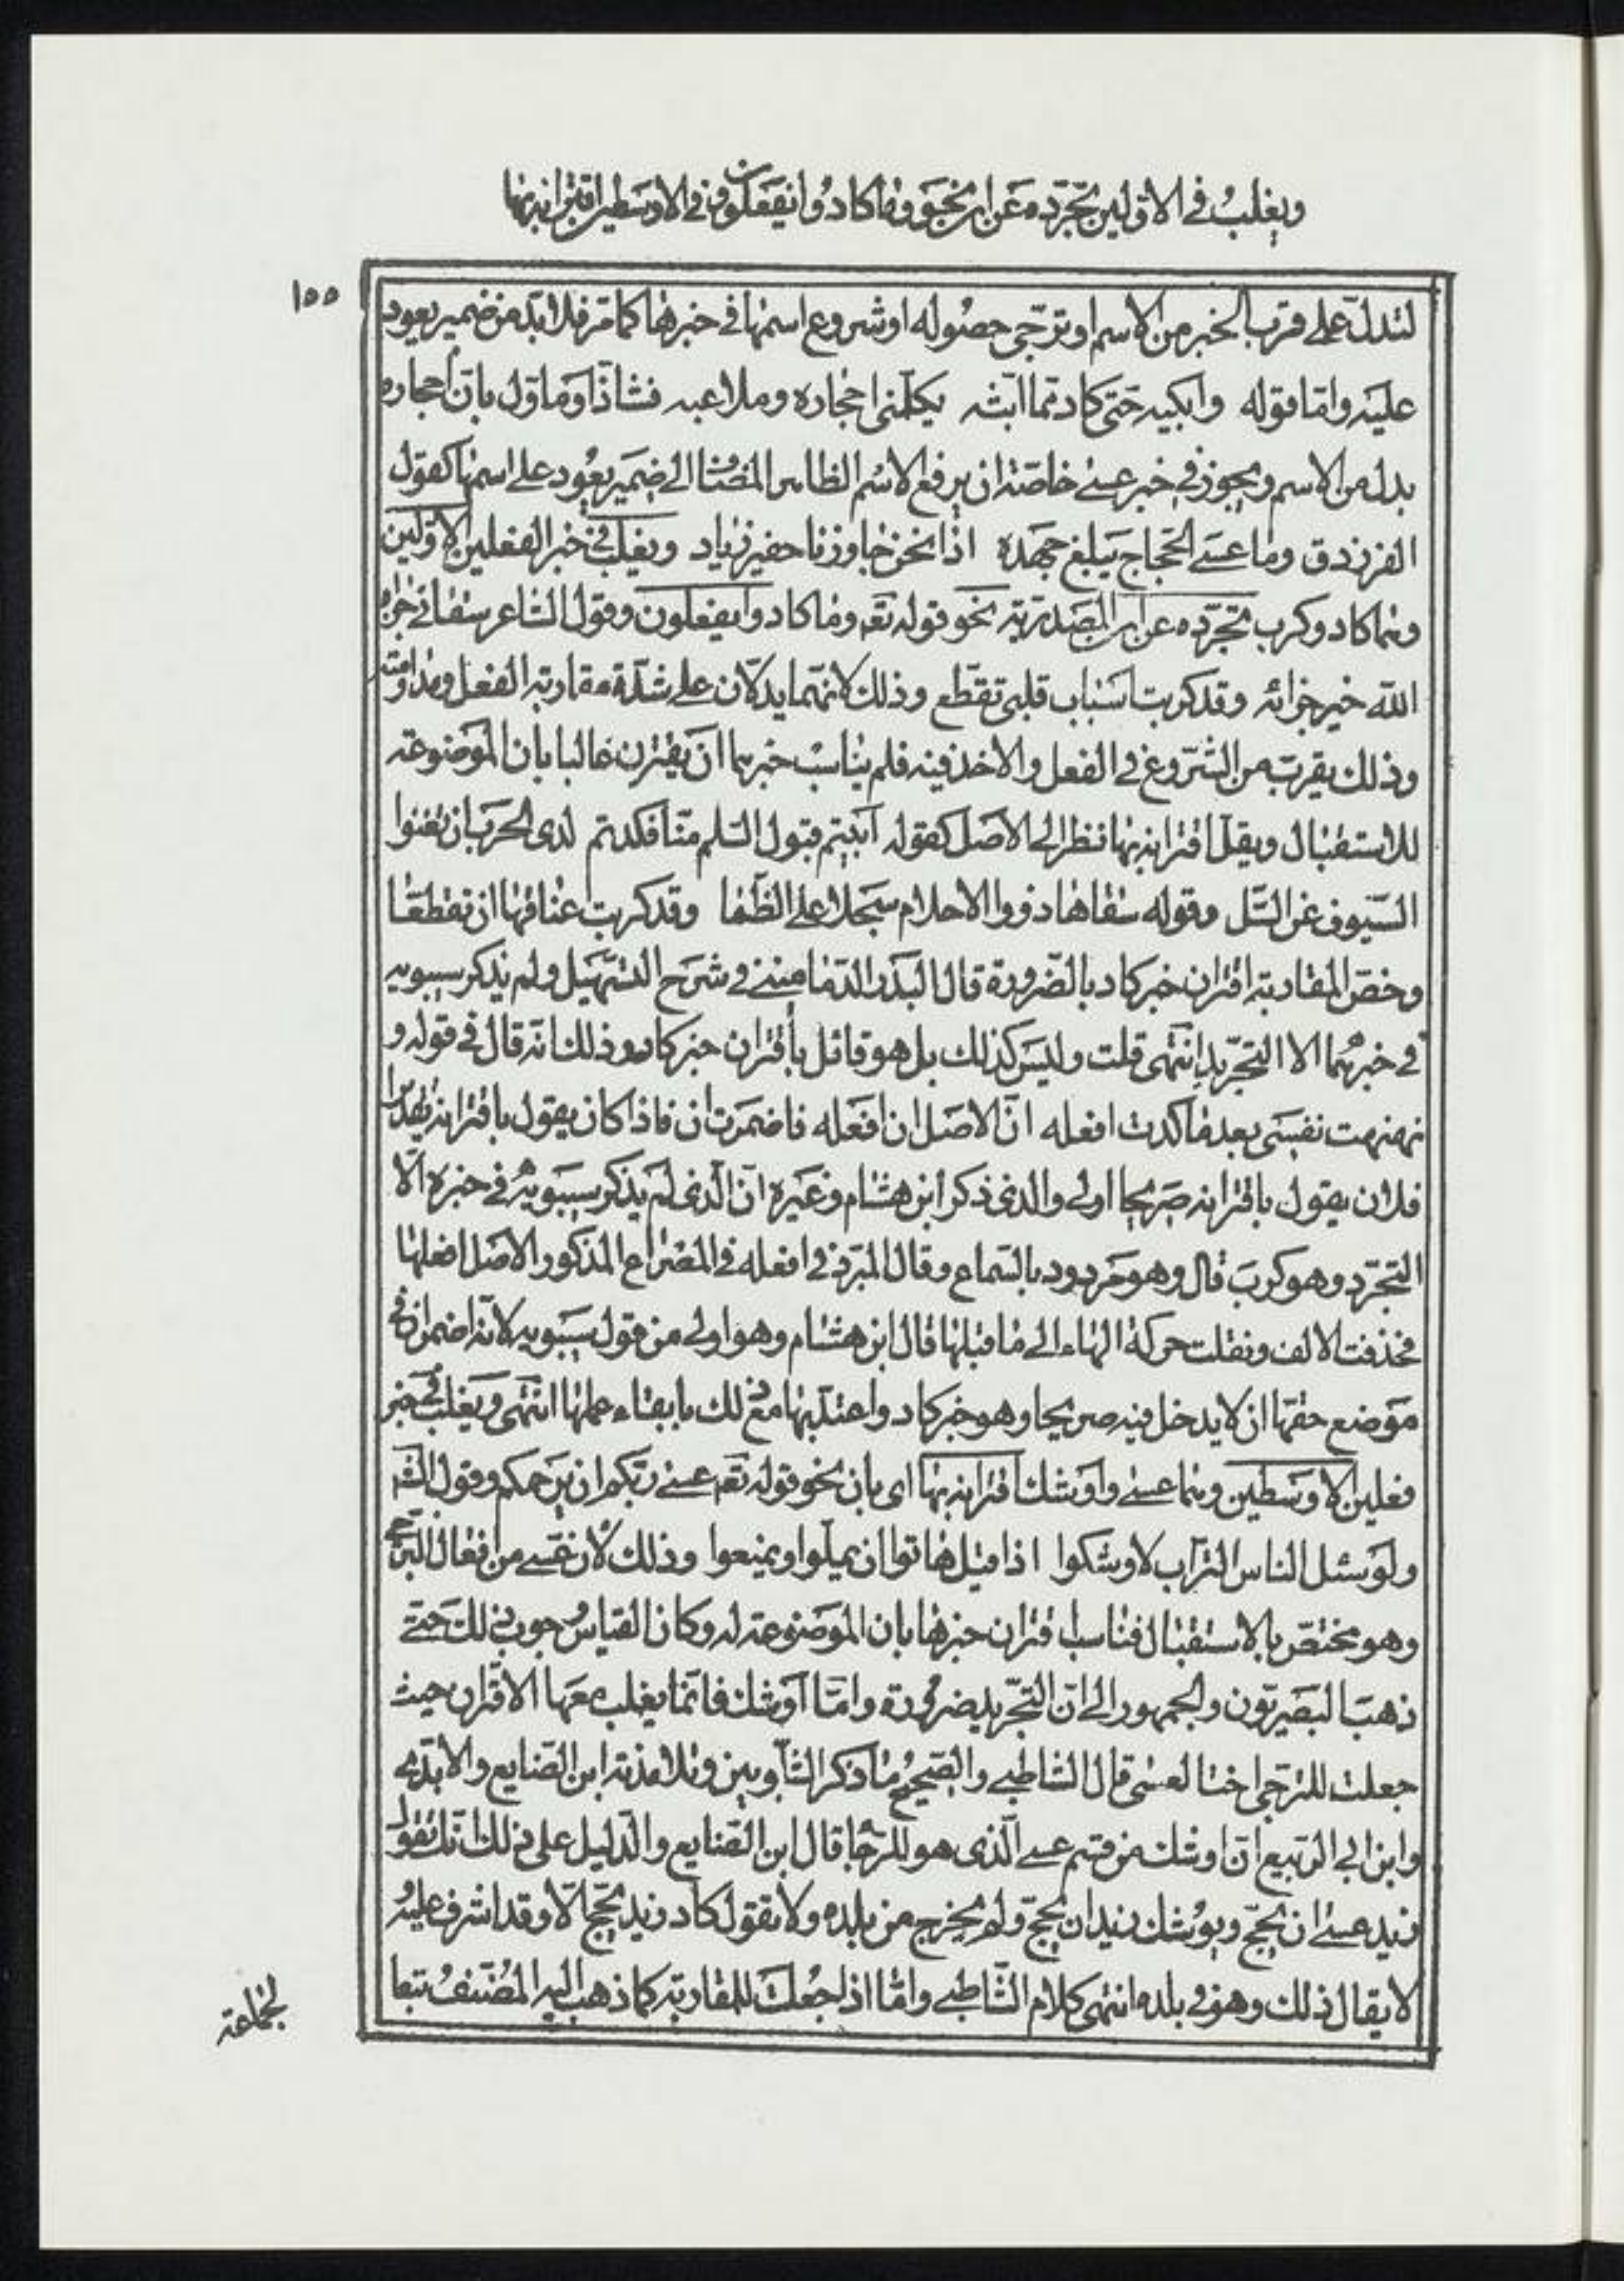 ويغلب في الاولين تجرده عن ان نحو وما كادوا يفعلون وفي الاوسطين اقترانه بها
١٥٥
لتدل على قرب الخبر من الاسم او ترجّى حصوله او شروع اسمها في خبرها كما مرّ فلا بدّ من ضمير يعود
عليه وامّا قوله وابكيه حتى كاد ممّا ابثه يكلّمني احجاره وملاعبه فشاذّ او ماوّل بانّ احجاره
بدل من الاسم ويجوز في خبر عسى خاصّة ان يرفع الاسم الظاهر المضاف الى ضمير يعود على اسمها كقول
الفرزدق وماذا عسى الحجاج يبلغ جهده اذا نحن جاوزنا حفير زياد ويغلب في خبر الفعلين الاوّلين
وهما كاد وكرب تجرّده عن ان المصدريّة نحو قوله تعه وما كادوا يفعلون وقول الشاعر سقاني جزاه
الله خير جزائه وقد كربت اسباب قلبي تقطع وذلك لانّهما يدلّان على شدّة مقاربة الفعل ومداومته
وذلك يقرب من الشروع في الفعل والاخذ فيه فلم يناسب خبرهما ان يقترن غالبا بان الموضوعة
للاستقبال ويقلّ اقترانه بها نظرا الى الاصل كقوله ابيتم قبول السّلم منّا فكدتم لدى الحرب ان تغنوا
السّيوف عن السّل وقوله سقاها ذووا الاحلام سجلا على الظّما وقد كربت اعناقها ان تقطعا
وخصّ المغاربة اقتران خبر كاد بالضّرورة قال البدر الدّماميني في شرح التسهيل ولم يذكر سيبويه
في خبرهما الا التجرّيد انتهى قلت وليس كذلك بل هو قائل باقتران خبر كاد وذلك انّه قال في قوله و
نهنهت نفسى بعد ما كدت افعله انّ الاصل ان افعله فاضمرت ان فاذا كان يقول باقترانه تقديرا
فلان يقول باقترانه صريحا اولى والذي ذكر ابن هشام وغيره انّ الّذي لم يذكر سيبويه في خبره الّا
التجرّد وهو كرب قال وهو مردود بالسّماع وقال المبرّد في افعله في المصراع المذكور الاصل افعلها
فحذفت الالف ونقلت حركة الهاء الى ما قبلها قال ابن هشام وهو اولى من قول سيبويه لانّه اضمر ان في
موضع حقّها ان لا يدخل فيه صريحا وهو خبر كاد واعتدّ بها مع ذلك بابقاء عملها انتهى ويغلب في خبر
فعلين الاوسطين وهما عسى واوشك اقترانه بها اى بان نحو قوله تعه عسى ربّكم ان يرحمكم وقول الشّه
ولو سئل الناس التراب لاوشكوا اذا قيل هاتوا ان يملّوا ويمنعوا وذلك لان عسى من افعال الترجّى
وهو مختصّ بالاستقبال فناسب اقتران خبرها بان الموضوعة له وكان القياس وجوب ذلك حتى
ذهب البصريّون والجمهور الى انّ التجرّيد ضرورة وامّا اوشك فانّما يغلب معها الاقتران حيث
جعلت للترجّى اختا لعسى قال الشاطبي والصّحيح ما ذكر الشلوبين وتلامذته ابن الضايع والابّدي
وابن ابي الرّبيع انّ اوشك من قسم عسى الّذى هو للرجاء قال ابن الضايع والدّليل على ذلك انّك تقول
زيد عسى ان يحجّ ويوشك زيد ان يحجّ ولم يخرج من بلده ولا تقول كاد زيد يحجّ الّا وقد اشرف عليه
لا يقال ذلك وهو في بلده انتهى كلام الشّاطبي وامّا اذا جعلت للمقاربة كما ذهب اليه المصنّف تبعا
لجماعة